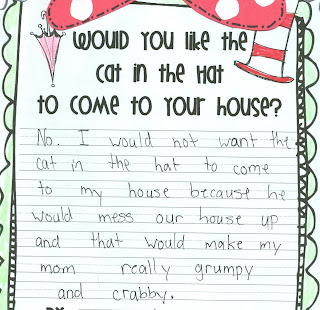 Would you like the
cat in the Hat
to come to your house?
No. I would not want the
cat in the hat to come
to my house because he
would mess our house up
and that would make my
mom really grumpy
and crabby.